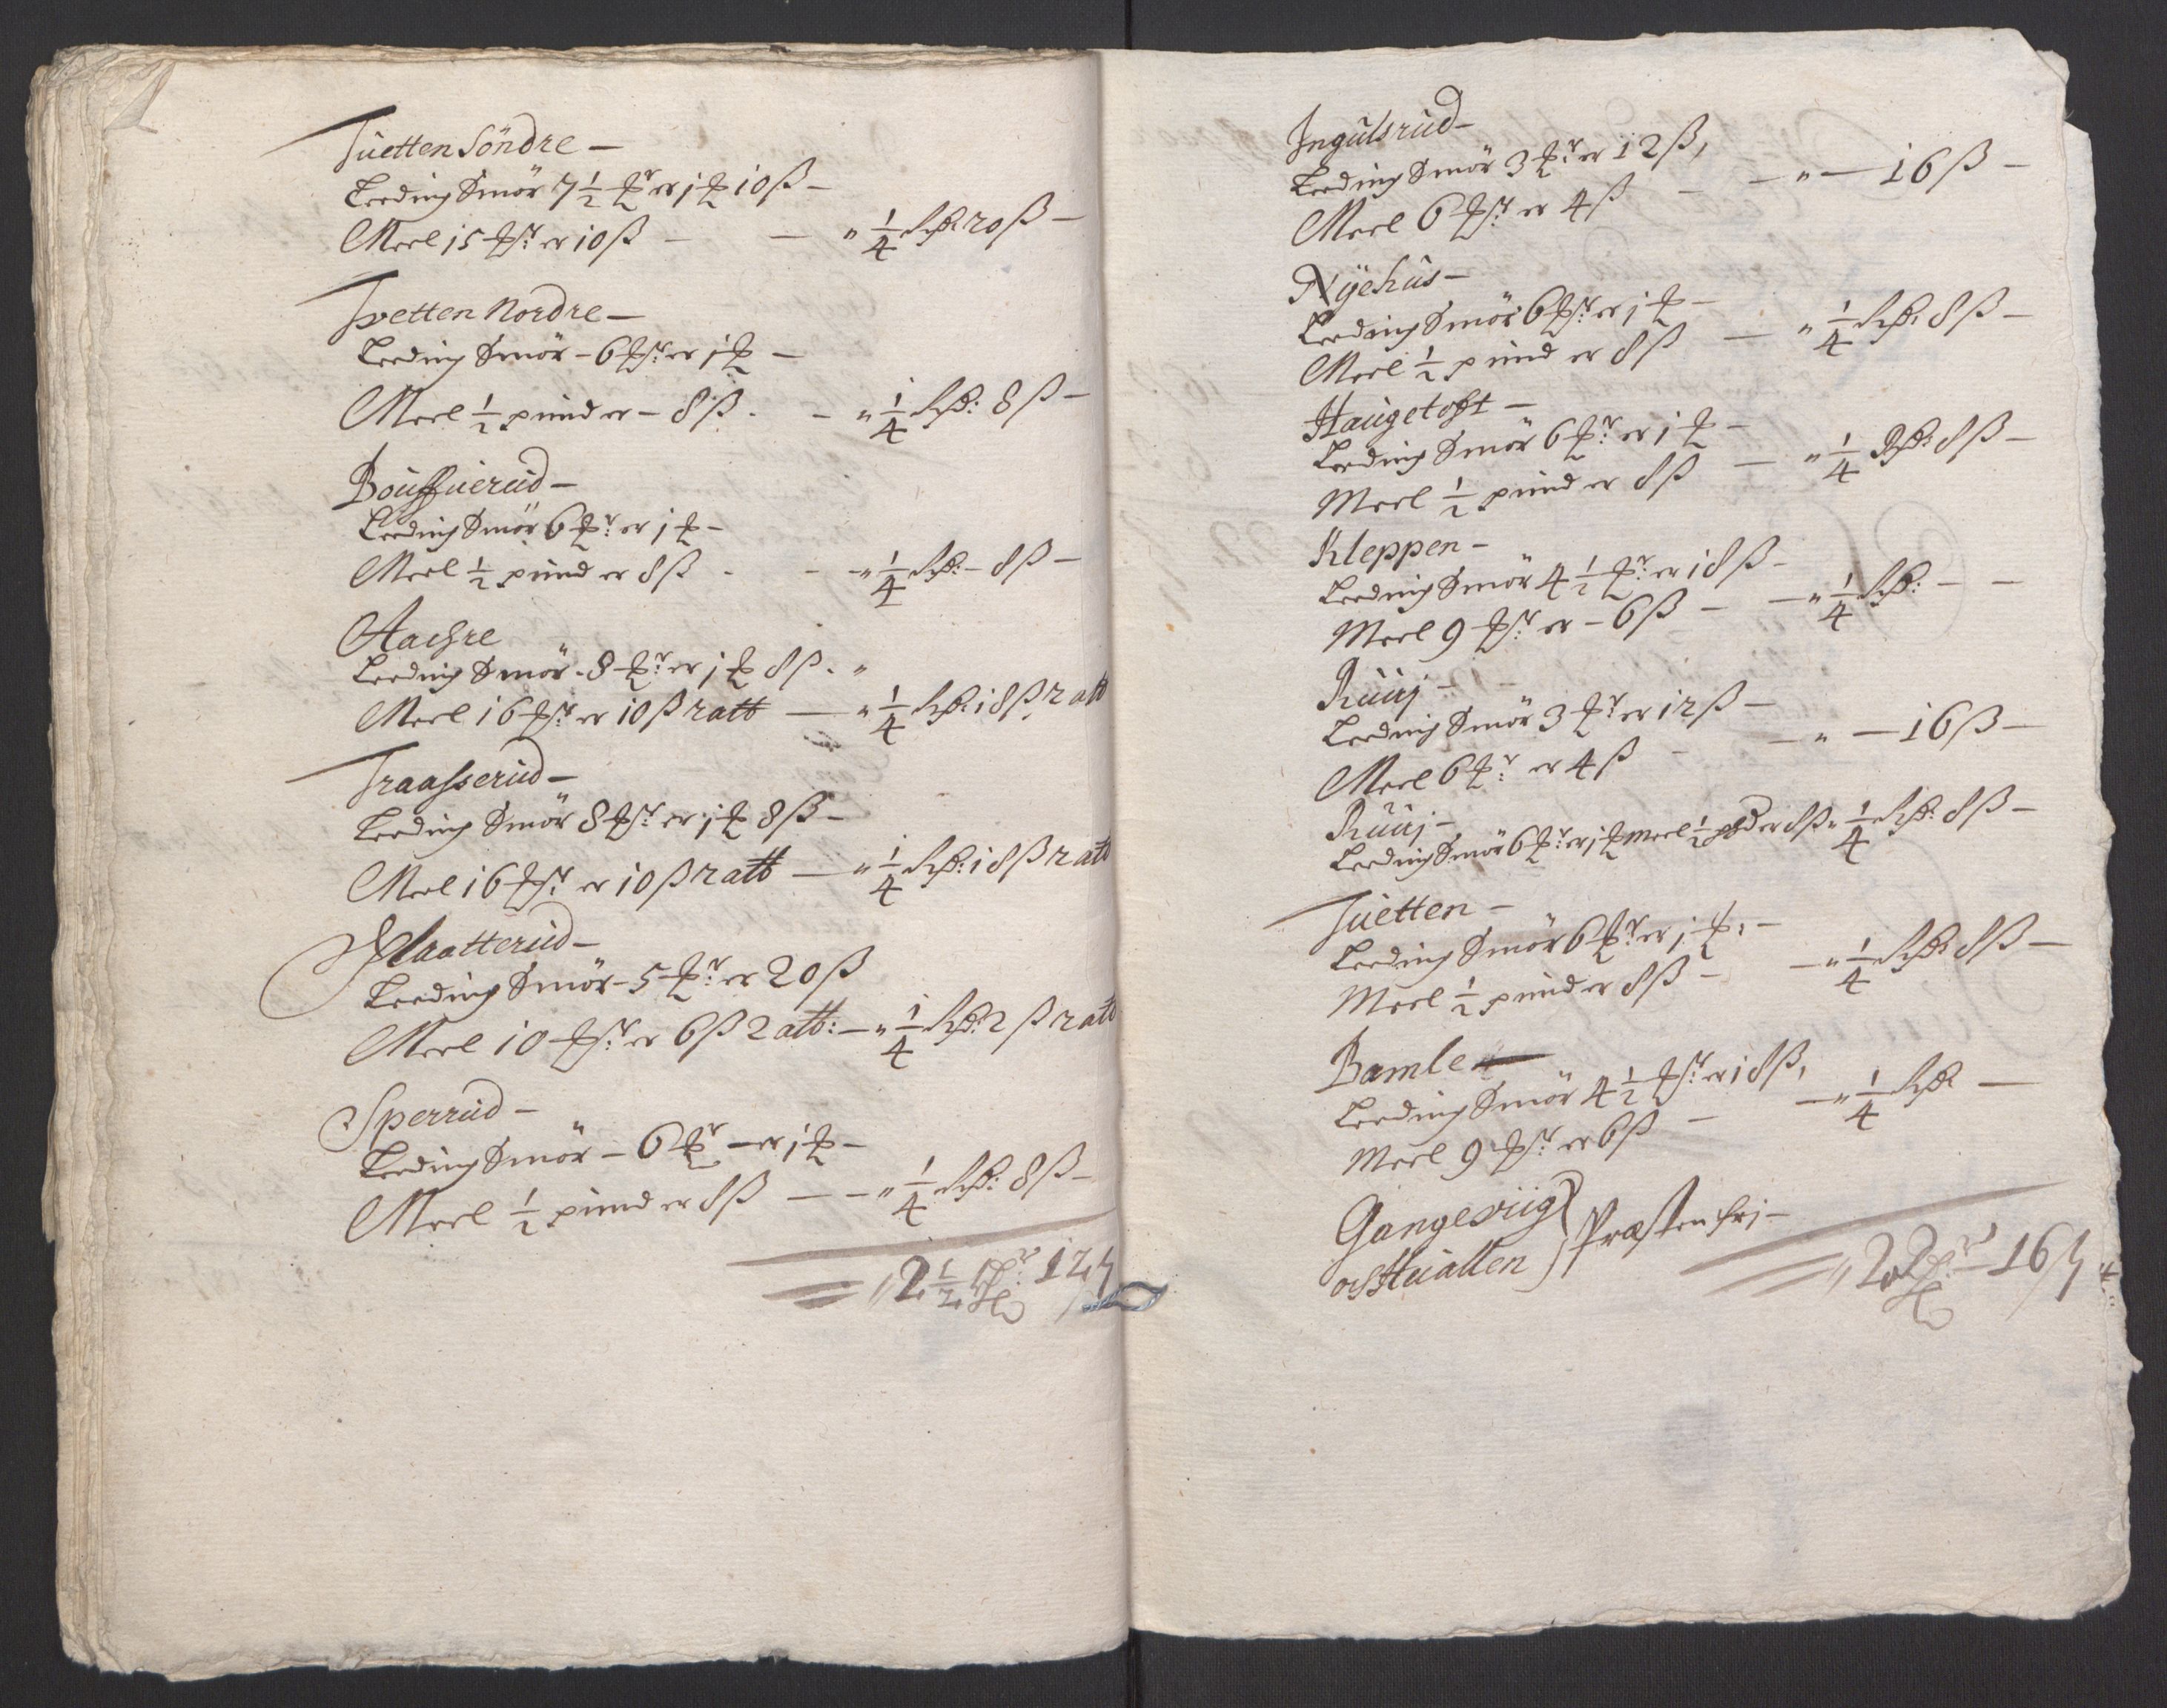 Tuetten Söndre –
Leeding Smör 7 1/2 ℔r er 1 ℔ 10 ß –
Meel 15 ℔r er 10 ß – – " 1/4 Rdr 20 ß –
Tvetten Nordre –
Leeding Smör – 6 ℔r er 1 ℔ –
Meel 1/2 pund er – 8 ß. – " 1/4 Rdr: 8 ß –
Leeding Smör 6 ℔r er 1 ℔ –
Meel 1/2 pund er 8 ß - - " 1/4 Rdr: – 8 ß –
Leeding Smör – 8 ℔r er 1 ℔ 8 ß. "
Meel 16 ℔r er 10 ß 2 alb – " 1/4 Rdr: 18 ß 2 alb
Traasserud –
Leeding Smör 8 ℔r er 1 ℔ 8 ß –
Meel 16 ℔r er 10 ß 2 alb – " 1/4 Rdr: 18 ß 2 alb
Platterud –
Leeding Smör – 5 ℔r er 20 ß
Meel 10 ℔r er 6 ß 2 alb: – " 1/4 Rdr: 2 ß 2 alb
Sperrud –
Leding Smör – 6 ℔r – er 1 ℔ –
Meel 1/2 pund er 8 ß – – " 1/4 Rdr: 8 ß –
" 2 1/2 Rdr: 12 ß
Ingulsrud –
Leeding Smör 3 ℔r er 12 ß,
Meel 6 ℔r er 4 ß – – " – 16 ß –
Nÿehus –
Leeding Smör 6 ℔r er 1 ℔ –
Meel 1/2 pund er 8 ß – " 1/4 Rdr: 8 ß –
Haugetoft –
Leeding Smör 6 ℔r er 1 ℔ –
Meel 1/2 pund er 8 ß – " 1/4 Rdr: 8 ß –
Kleppen –
Leeding Smör 4 1/2 ℔r er 18 ß –
Meel 9 ℔r er – 6 ß – – " 1/4 Rdr: – –
Ruuj –
Leeding Smör 3 ℔r er 12 ß –
Meel 6 ℔r er 4 ß - – " – 16 ß –
Ruuj –
Leeding Smör 6 ℔r er 1 ℔ meel 1/2 pd er 8 ß " 1/4 Rdr: 8 ß –
Tuetten –
Leeding Smör 6 ℔r er 1 ℔. –
Meel 1/2 pund er 8 ß – – " 1/4 Rdr: 8 ß –
Bamle –
Leeding Smör 4 1/2 ℔r er 18 ß,
Meel 9 ℔r er 6 ß – – " 1/4 Rdr –
Gangeviig
och Huallen } Præsten fri –
" 2 Rdr – 16 ß